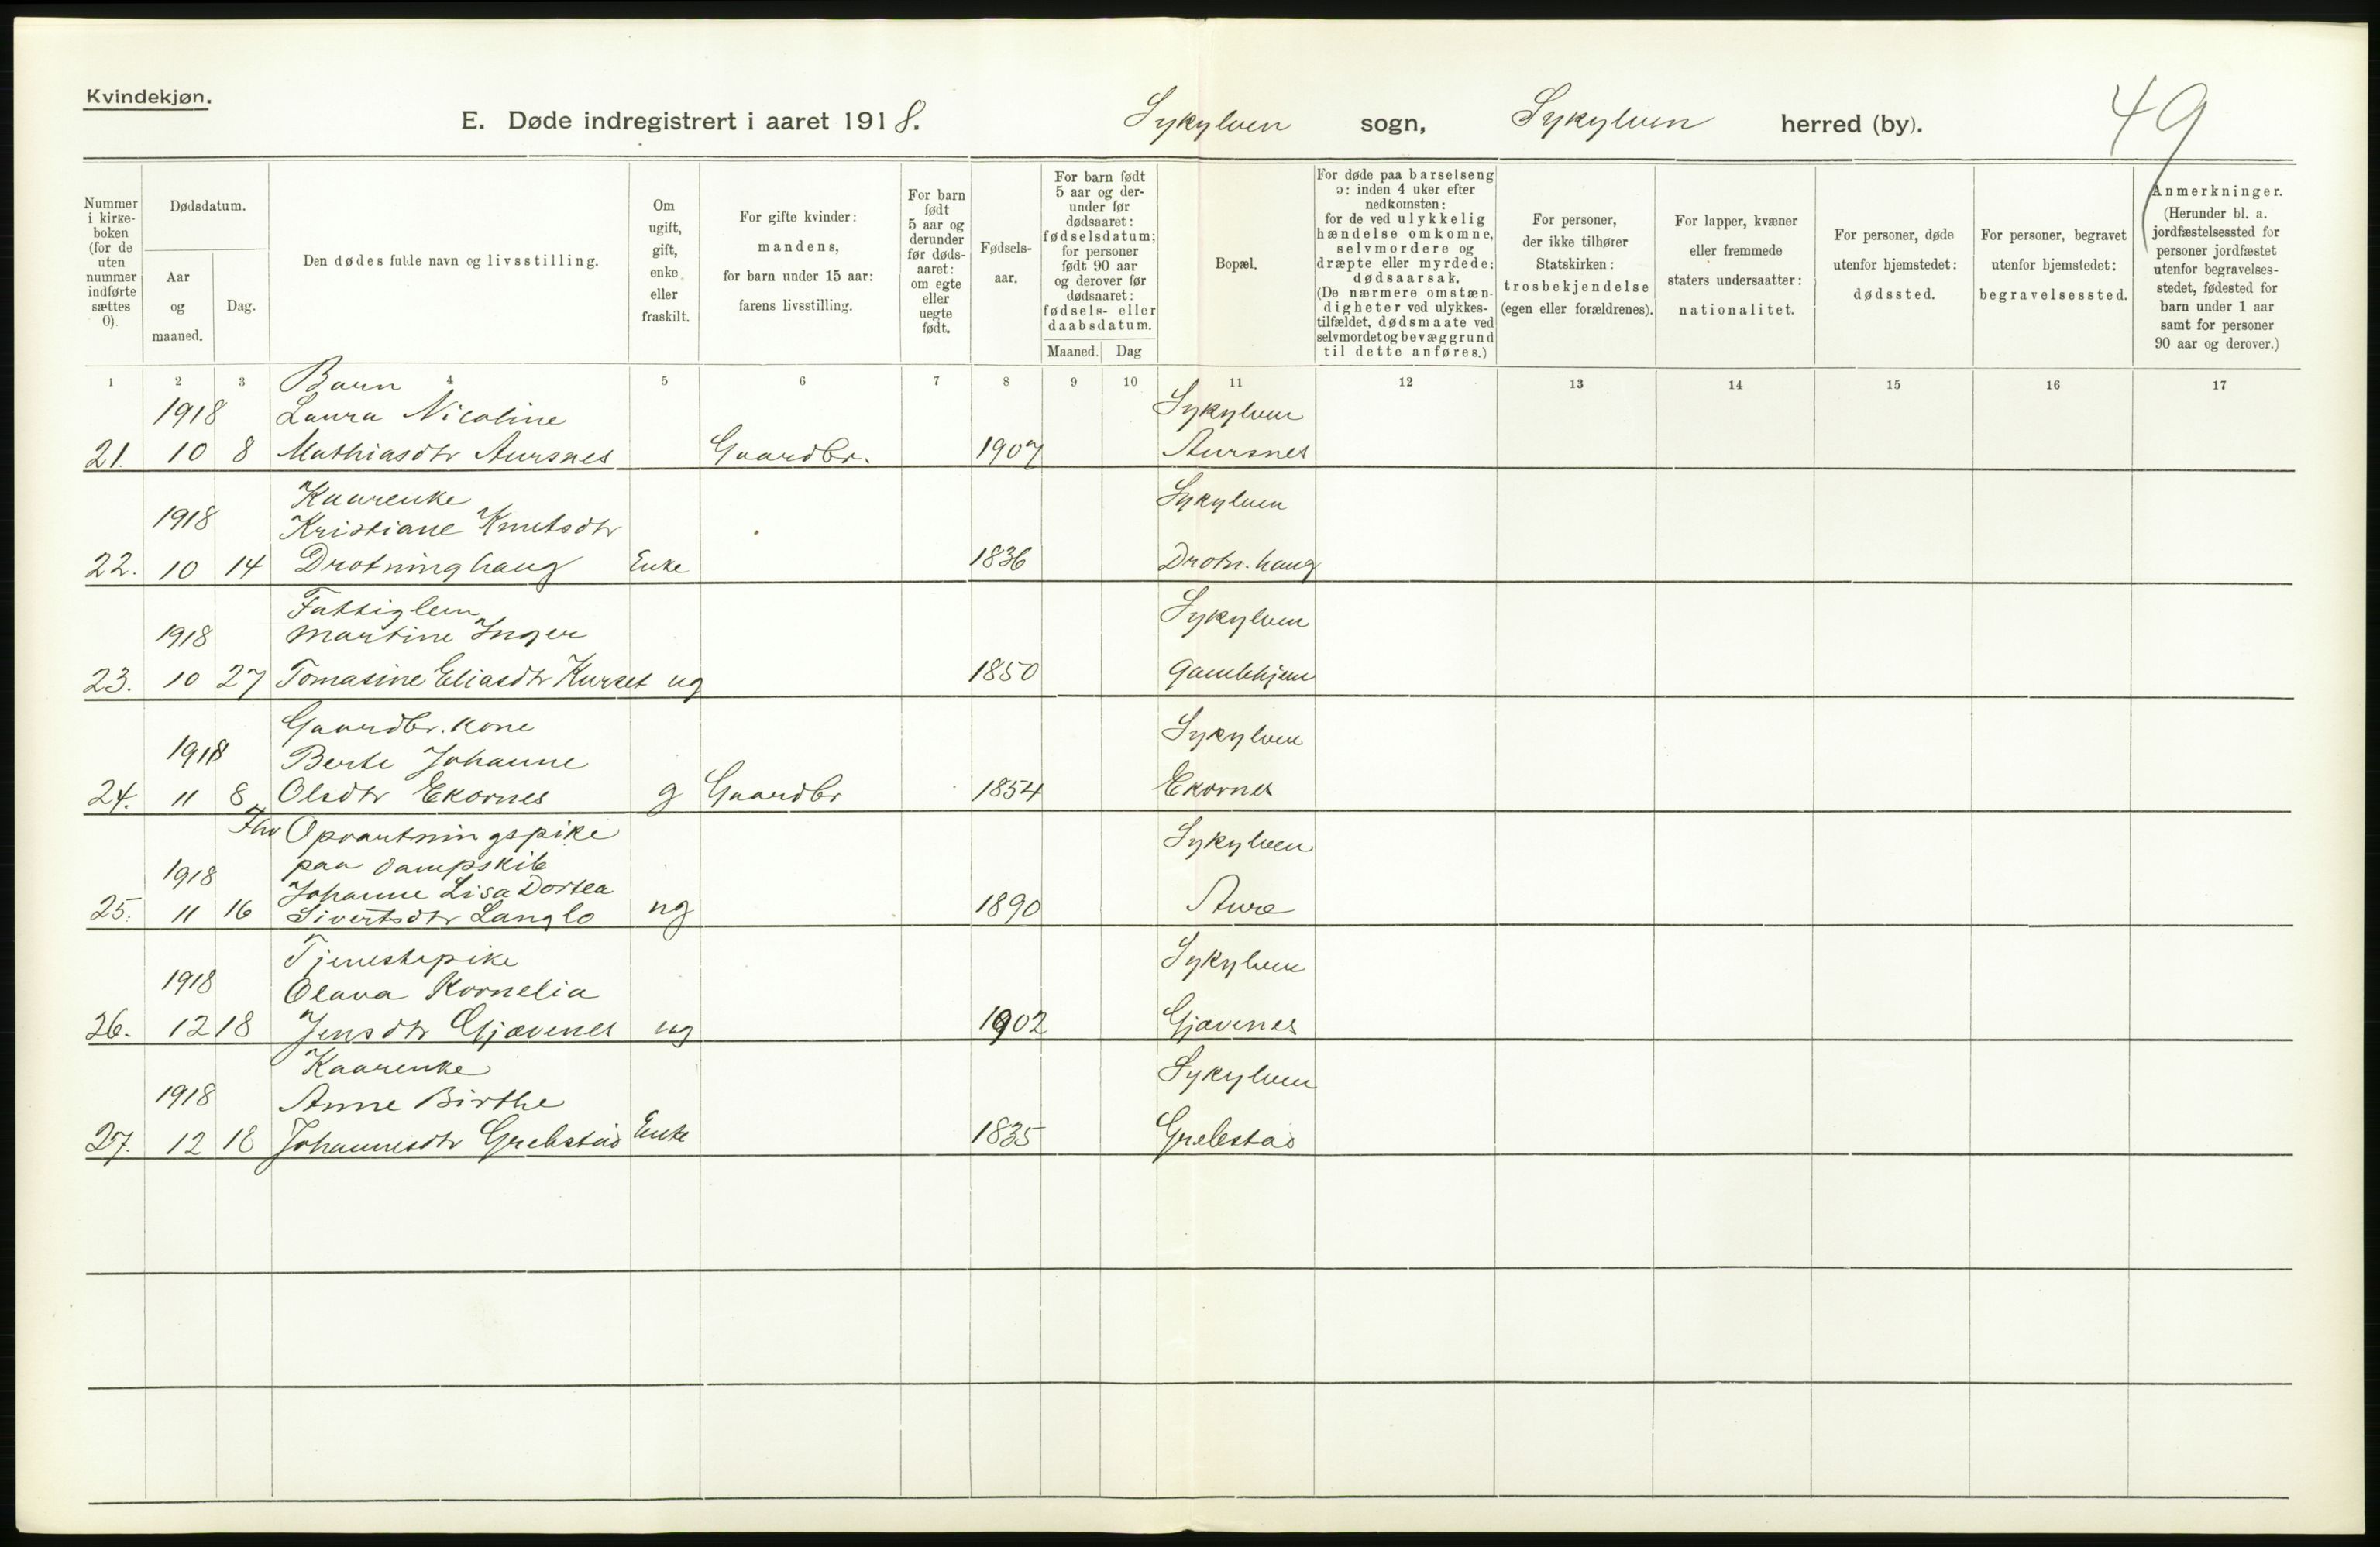 Kvindekjøn.
E. Døde indregistrert i aaret 1918. Sykylven sogn, Sykylven herred (by).
49
Nummer i kirkeboken (for de uten nummer indførte sættes 0).
Dødsdatum.
Aar og maaned.
Dag.
Den dødes fulde navn og livsstilling.
Om ugift, gift, enke eller fraskilt.
For gifte kvinder: mandens, for barn under 15 aar: farens livsstilling.
For barn født 5 aar og derunder før dødsaaret: om egte eller uegte født.
Fødselsaar.
For barn født 5 aar og derunder før dødsaaret: fødselsdatum; for personer født 90 aar og derover før dødsaaret: fødsels- eller daabsdatum.
Maaned. Dag
Bopæl.
For døde paa barselseng ɔ: inden 4 uker efter nedkomsten: for de ved ulykkelig hændelse omkomne, selvmordere og dræpte eller myrdede: dødsaarsak. (De nærmere omstændigheter ved ulykkestilfældet, dødsmaate ved selvmordet og bevæggrund til dette anføres.)
For personer, der ikke tilhører Statskirken: trosbekjendelse (egen eller forældrenes).
For lapper, kvæner eller fremmede staters undersaatter: nationalitet.
For personer, døde utenfor hjemstedet: dødssted.
For personer, begravet utenfor hjemstedet: begravelsessted.
Anmerkninger. (Herunder bl. a. jordfæstelsessted for personer jordfæstet utenfor begravelsesstedet, fødested for barn under 1 aar samt for personer 90 aar og derover.)
1 2 3 4 5 6 7 8 9 10 11 12 13 14 15 16 17
Barn
1918 Laura Nicoline Sykylven
21. 10 8 Mathiasdtr Aursnes Gaardbr. 1907 Aursnes
Kaarenke Sykylven
1918 Kristiane Knutsdtr
22. 10 14 Drotninghaug Enke 1836 Drotn.haug
Fattiglem Sykylven
1918 Martine Inger
23. 10 27 Tomasine Eliasdtr Kurset ug 1850 Gamlehjem
Gaardbr. kone Sykylven
1918 Berte Johanne
24. 11 8 Olsdtr Ekornes g Gaardbr 1854 Ekornes
Fhv Opvartningspike Sykylven
paa dampskib
1918 Johanne Lisa Dortea
25. 11 16 Sivertsdtr Langlo ug 1890 Aure
Tjenestepike Sykylven
1918 Olava Kornelia
26. 12 18 Jensdtr Gjævenes ug 1902 Gjævenes
Kaarenke Sykylven
1918 Anne Birthe
27. 12 18 Johannesdtr Grebstad Enke 1835 Grebstad